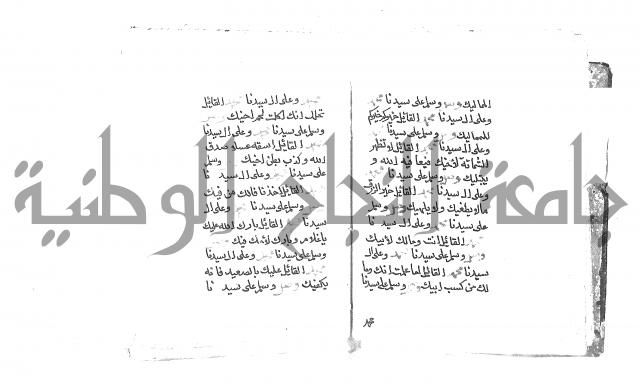 المماليك وسلم على سيدنا
وعلى ال سيدنا القائل خيركم خيركم
للمماليك وسلم على سيدنا
وعلى ال سيدنا القائل لا تظهر
الشماتة لاخيك فيعافيه الله و
يبتليك وسلم على سيدنا
وعلى ال سيدنا القائل خير الرزق
ما لا يطغيك ولا يلهيك وسلم
على سيدنا وعلى ال سيد نا
القائل انت ومالك لابيك
وسلم على سيدنا وعلى ال
سيدنا القائل اما علمت انك وما
لك من كسب ابيك وسلم على سيدنا
محمد
وعلى ال سيدنا القائل
تخلل انك اكلت لحم اخيك
وسلم على سيدنا وعلى ال سيدنا
القائل اسقه عسلا صدق
الله وكذب بطن اخيك وسلم
على سيدنا وعلى ال سيد نا
القائل اخذنا فالك من فيك
وسلم على سيدنا وعلى ال
سيدنا القائل بارك الله عليك
يا غلام وبارك لامك فيك
وسلم على سيدنا وعلى ال سيدنا
القائل عليك بالصعيد فانه
يكفيك وسلم على سيد نا
جامعة النجاح الوطنية